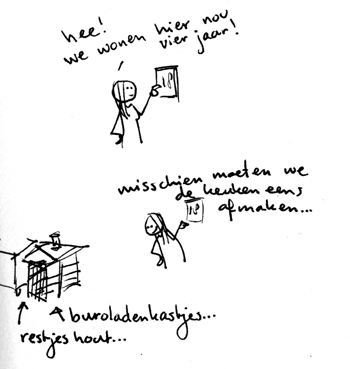 hee!
we wonen hier nou
vier jaar!
18
misschien moeten we
de keuken eens
afmaken...
18
buroladenkastjes...
restjes hout...